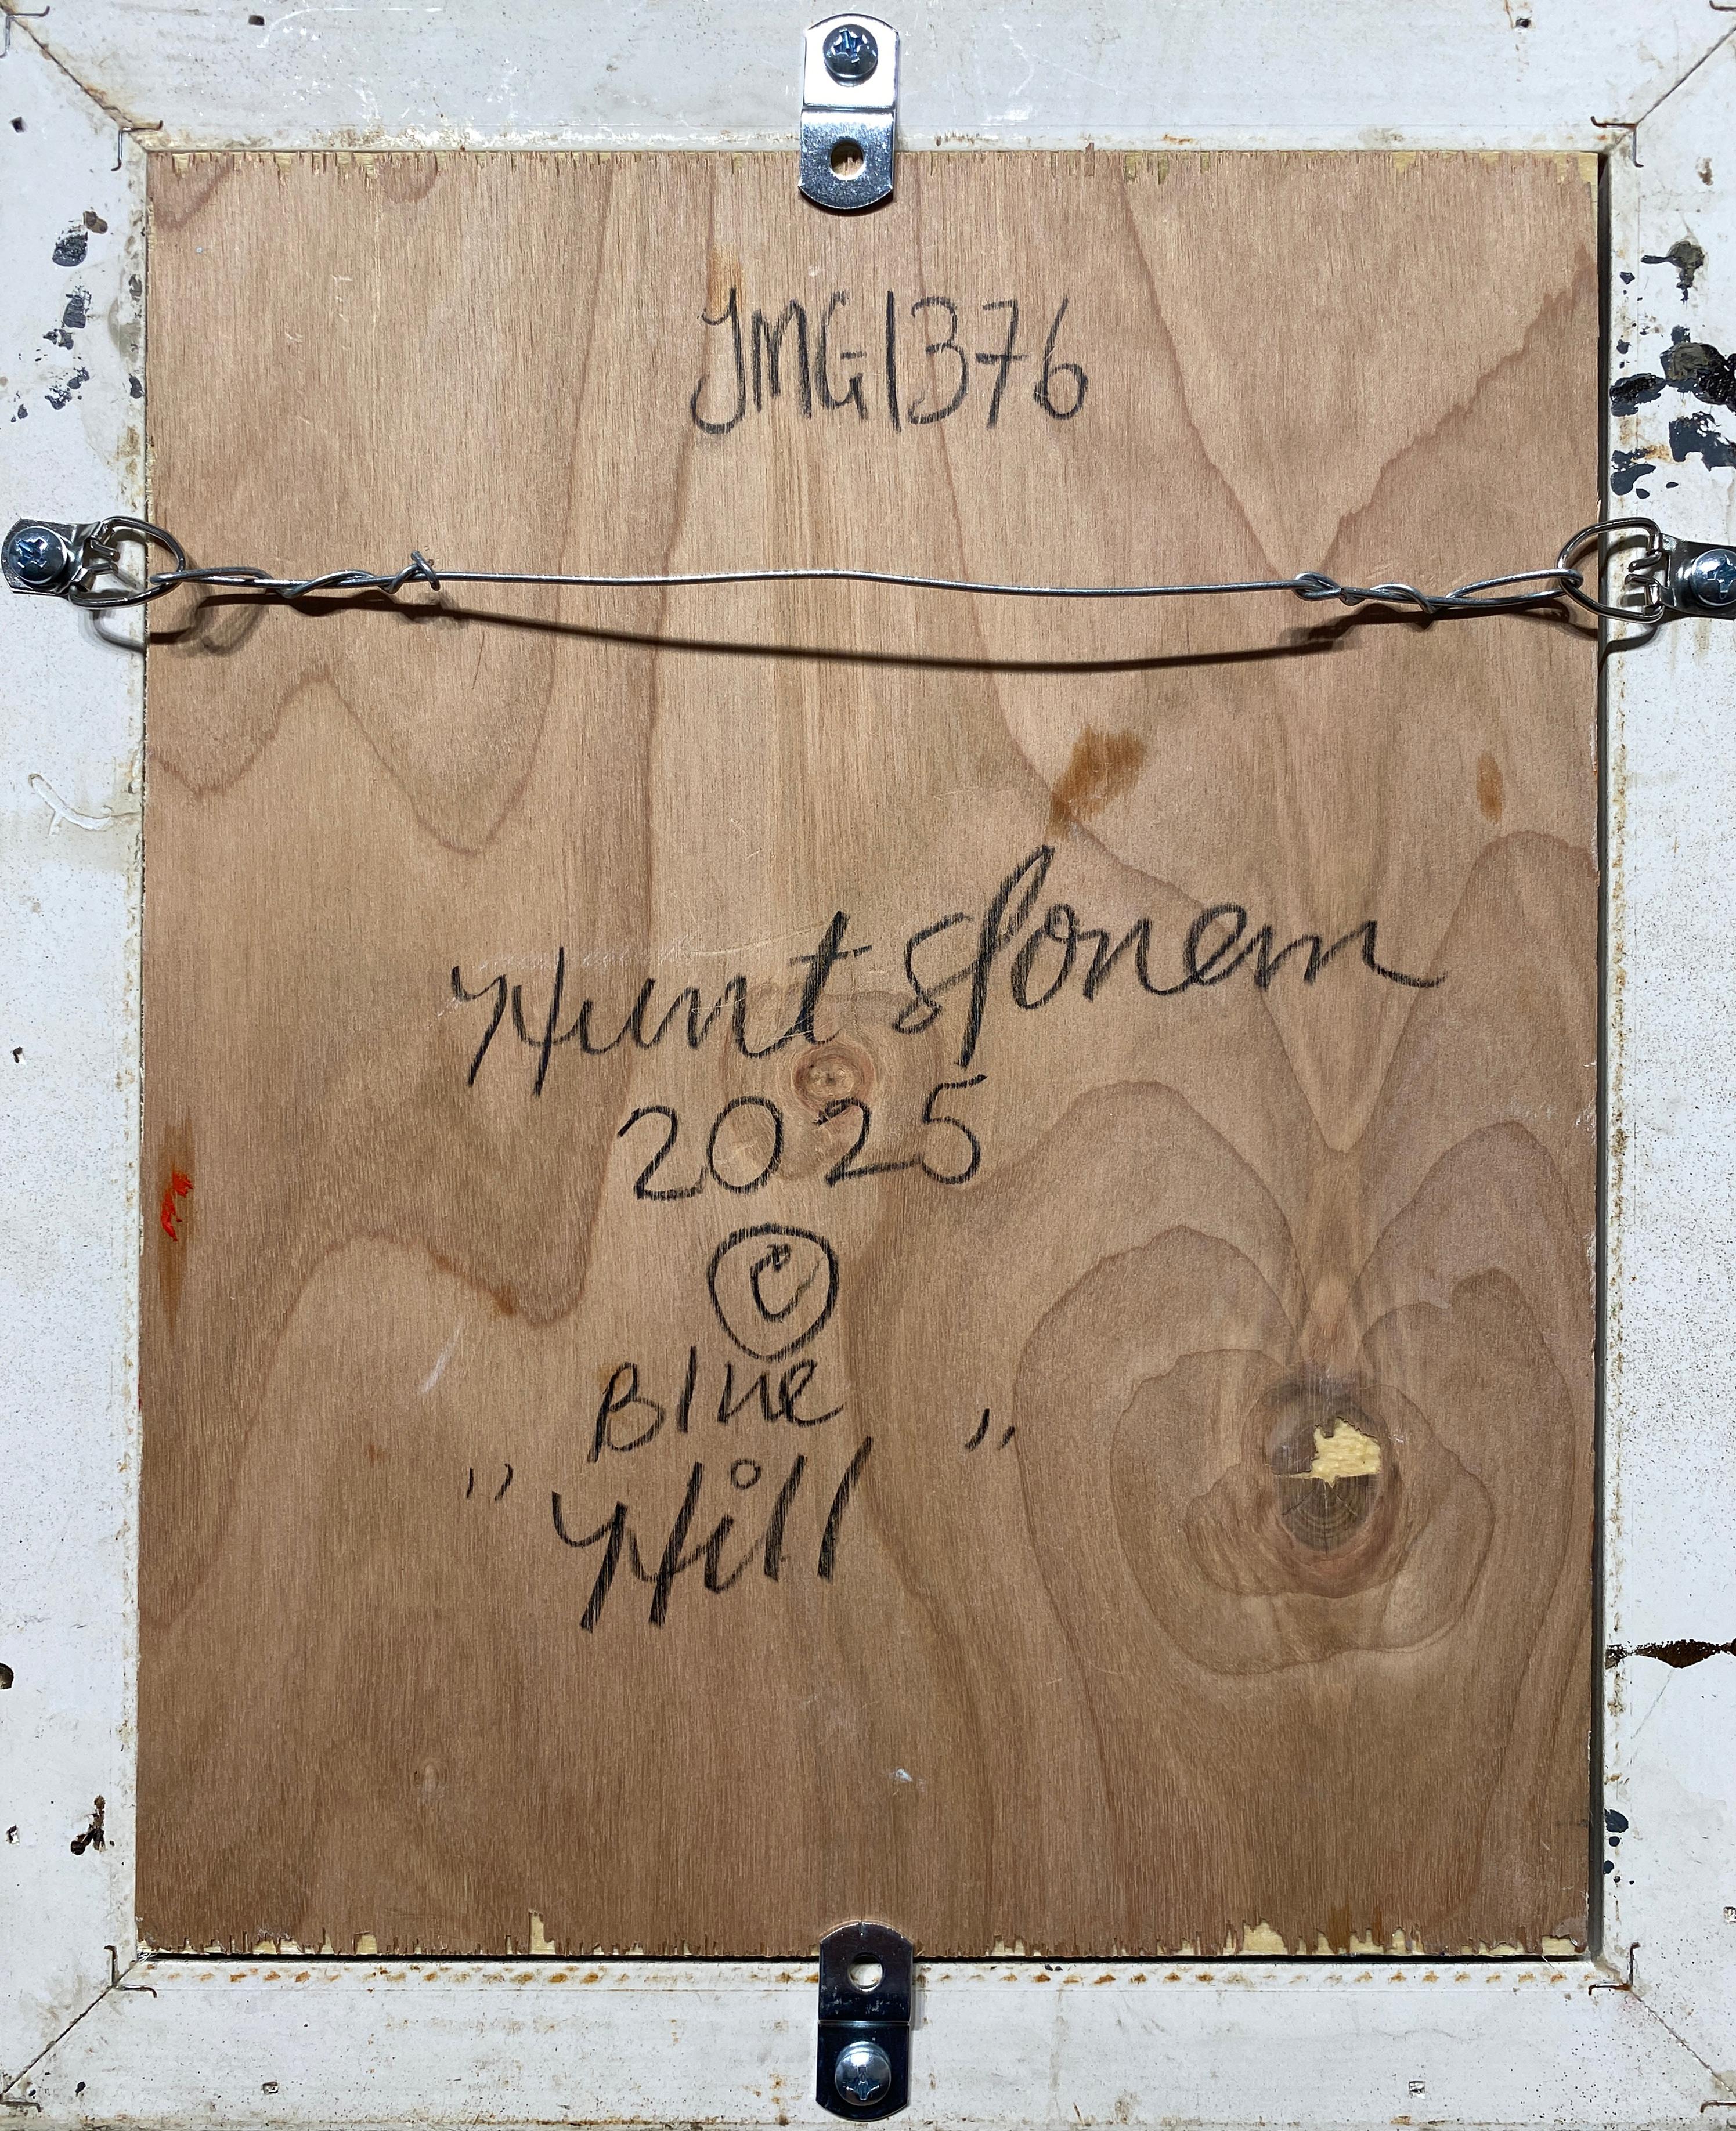 JMG1376
Hunt Slonem
2025
©
Blue
"Hill"